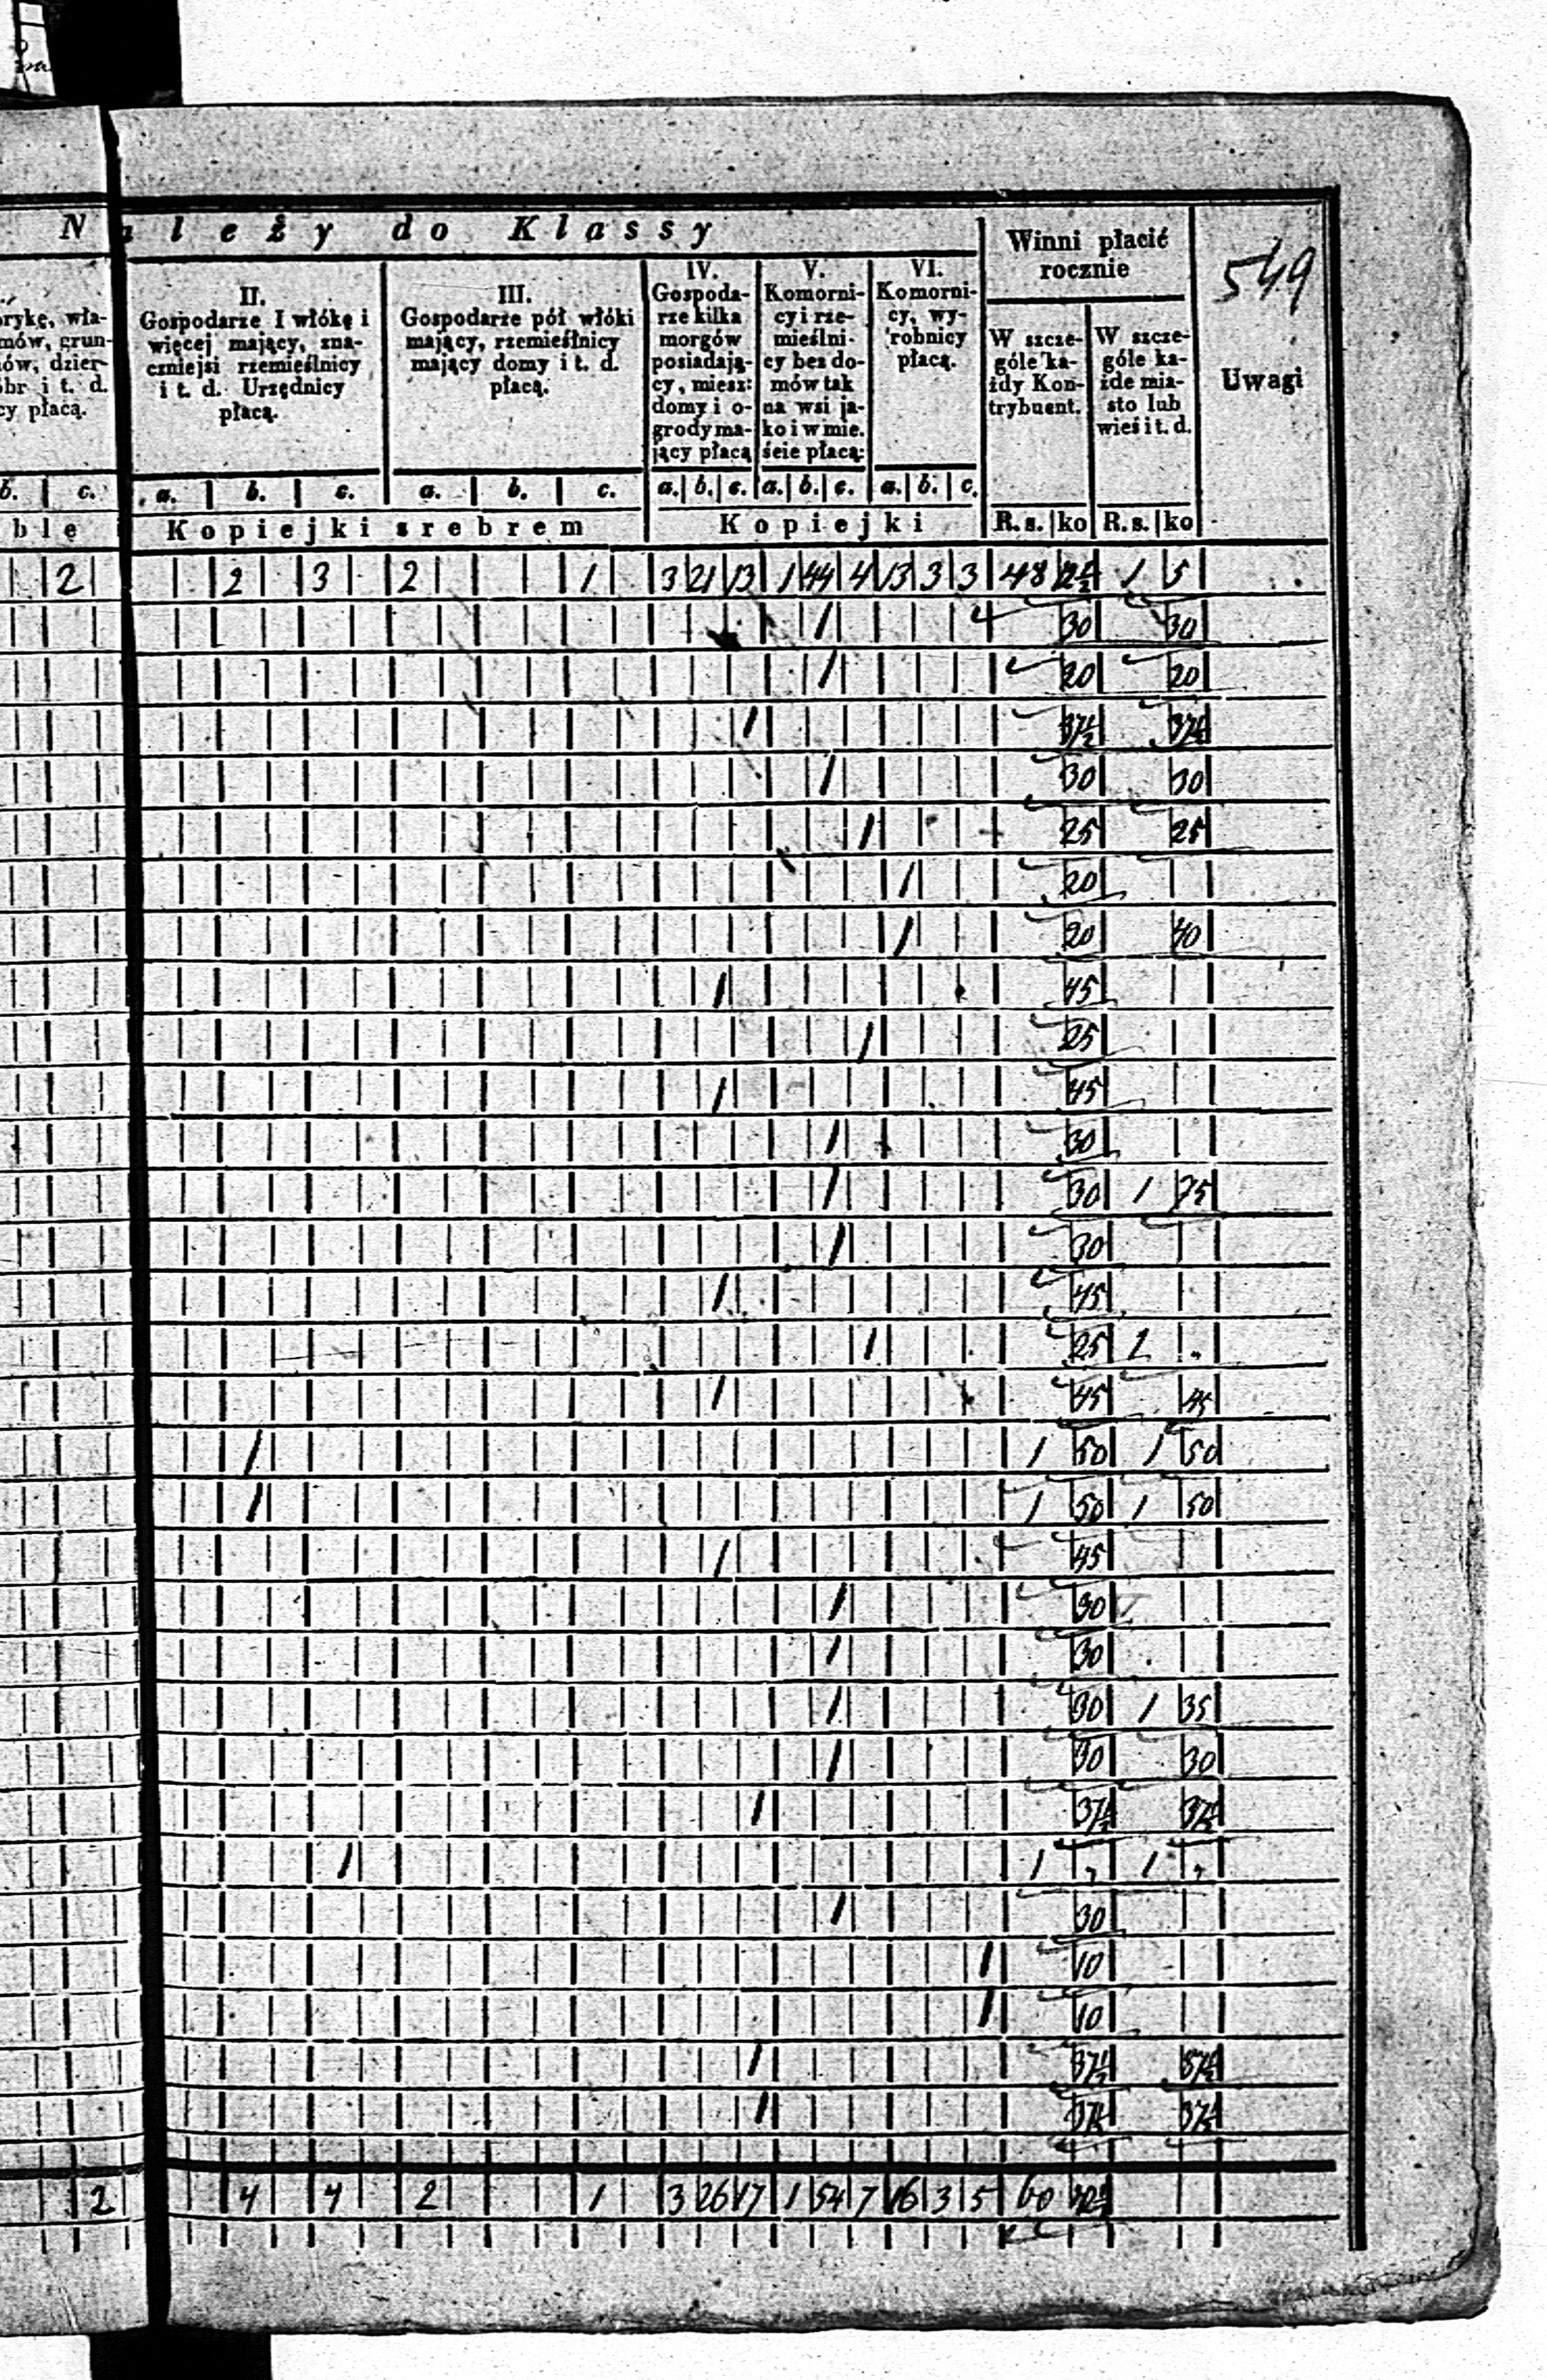 N a l e ż y d o K l a s s y
Winni płacić
rocznie
549
rykę, wła-
mów, grun-
ów, dzier-
br i t. d.
cy płacą.
II.
Gospodarze I włókę i
więcej mający, zna-
czniejsi rzemieślnicy
i t. d. Urzędnicy
płacą.
III.
Gospodarze pół włóki
mający, rzemieślnicy
mający domy i t. d.
płacą.
IV.
Gospoda-
rze kilka
morgów
posiadają-
cy, miesz:
domy i o-
grody ma-
jący płacą
V.
Komorni-
cy i rze-
mieślni-
cy bez do-
mów tak
na wsi ja-
ko i w mie.
ście płacą:
VI.
Komorni-
cy, wy-
robnicy
płacą.
W szcze-
góle ka-
żdy Kon-
trybuent.
W szcze-
góle ka-
żde mia-
sto lub
wieś i t. d.
Uwagi
b. c. a. b. c. a. b. c. a. b. c. a. b. c. a. b. c.
blę Kopiejki srebrem Kopiejki R. s. ko R. s. ko
2 2 3 2 1 3 21 13 1 44 4 13 3 3 48 2½ 1 5
1 30 30
1 20 20
1 37½ 37½
1 30 30
1 25 25
1 20
1 20 40
1 45
1 25
1 45
1 30
1 30 1 75
1 30
1 45
1 25 1 "
1 45 45
1 1 50 1 50
1 1 50 1 50
1 45
1 30
1 30
1 30 1 35
1 30 30
1 37½ 37½
1 1 " 1 "
1 30
1 10
1 10
1 37½ 37½
1 37½ 37½
2 4 4 2 1 3 26 17 1 54 7 16 3 5 60